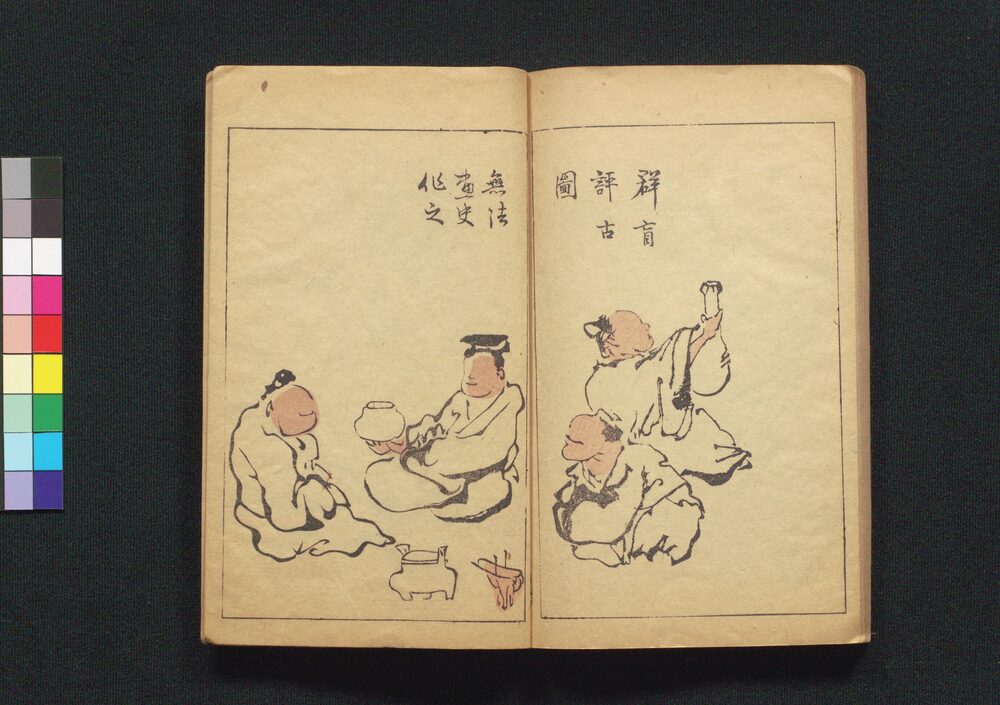 群盲
評古
圖
無法
畫史
作之